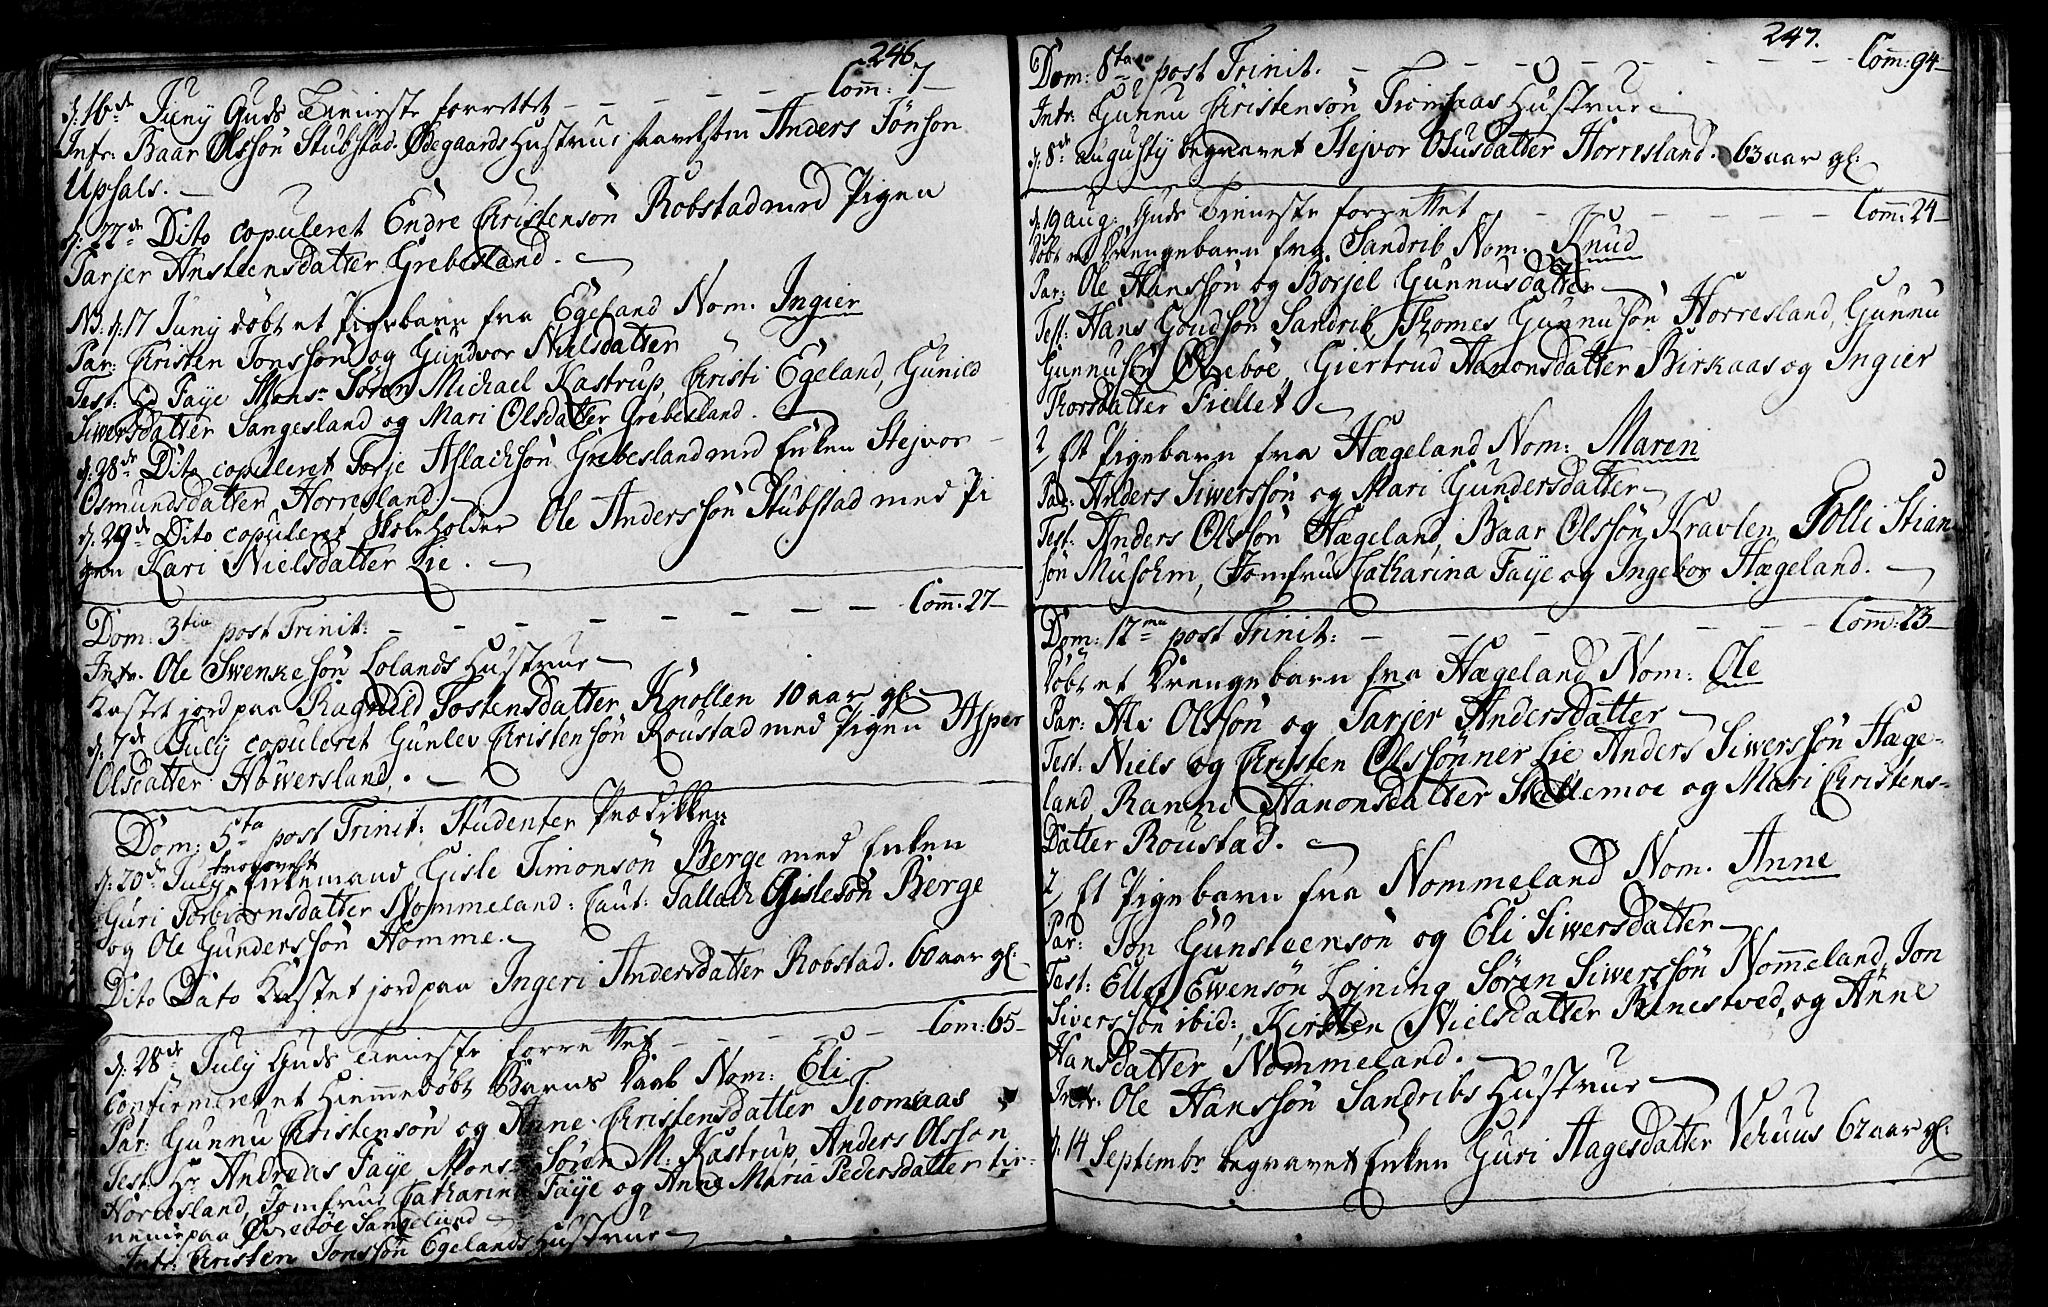 246.
d: 16de Juny Guds Tieneste forrettet — — — — — Comm: 7 —
Intr: Baar Olssön Stubstad Ødegaards Hustrue saavelsom Anders Jönsön
Upsals. —
d: 22de Dito copuleret Endre Christensön Robstad med Pigen
Tarjer Ansteensdatter Grebesland. —
NB: d: 17 Juny döbt et Pigebarn fra Egeland Nom. Ingier
Par: Christen Jonssön og Gundvor Nielsdatter
Test: Faÿe Mons:r Sören Michael Kastrup, Christi Egeland, Gunild
Siwersdatter Sangesland og Mari Olsdatter Grebesland. —
d: 28de Dito copuleret Torje Aslachsön Grebesland med Enken Stejvor
Osmundsdatter Horresland. —
d. 29de Dito copuleret Skoleholder Ole Anderssön Stubstad med Pi
gen Kari Nielsdatter Lie. —
Dom: 3tia post Trinit: — — — — — — — Comm: 27 —
Intr. Ole Swenkesön Lolands Hustrue —
Kastet jord paa Ragnild Tostensdatter Knollen 10 aar gl. —
d: 7de July copuleret Gunlev Christensön Roustad med Pigen Asper
Olsdatter Höwersland. —
Dom: 5ta post Trinit: Studenter Prædikken
d: 20de July trolovet Enkemand Gisle Timonsön Berge med Enken
Guri Torbiörnsdatter Nommeland: Caut: Tallach Gislesön Berge
og Ole Gunderssön Homme. —
Dito Dato Kastet jord paa Ingeri Andersdatter Robstad. 60 aar gl. —
d: 28de July Guds Tieneste forrettet — — — — Com: 65 —
Confirmeret et Hiemmedöbt Barns Daab Nom: Eli
Par: Gunnu Christensön og Anne Christensdatter Tiomsaas
Test: Hr Andreas Faÿe Mons:r Sören M. Kastrup, Anders Olssön
Horresland, Jomfrue Catharina Faÿe og Anne Maria Pedersdatter tie-
nende paa Øvreböe
Intr: Christen Jonssön Egelands Hustrue —
247.
Dom: 8tava post Trinit. — — — — — — — — Comm: 94 —
Intr: Gunnu Christensön Tiomsaas Hustrue —
d: 8de augusty begravet Stejvor Osusdatter Horresland. 63 aar gl: —
d: 19 aug: Guds Tieneste forrettet — — — — — Comm: 24 —
döbt et Drengebarn fra Sandrib Nom. Knud
Par: Ole Hanssön og Borjel Gunnusdatter —
Test: Hans Goudsön Sandrib Thomes Gunnusön Horresland, Gunnu
Gunnusön Øvreböe, Giertrud Hanonsdatter Birkaas og Ingier
Thorsdatter Fiellet —
2/ Et Pigebarn fra Hægeland Nom: Maren
Par: Anders Siwerssön og Mari Gundersdatter —
Test: Anders Olssön Hægeland, Baar Olssön Kravlen, Tolli Stian
sön Musohm, Jomfrue Catharina Faÿe og Ingebor Hægeland. —
Dom: 12ma post Trinit: — — — — — — — Comm: 23 —
döbt et Drengebarn fra Hægeland Nom: Ole
Par: Alv Olssön og Tarjer Andersdatter —
Test: Niels og Christen Olssönner Lie Anders Siwerssön Hæge-
land Ranni Hanonsdatter Skettemoe og Mari Christens-
Datter Roustad. —
2/ Et Pigebarn fra Nommeland Nom. Anne
Par: Jon Gunsteensön og Eli Siwersdatter —
Test: Ellef Ewensön Löining Sören Siwerssön Nommeland, Jon
Siverssön ibid:, Kirsten Nielsdatter Ranestved, og Anne
Hansdatter Nommeland. —
Intr: Ole Hanssön Sandribs Hustrue —
d: 14 Septembr begravet Enken Guri Aagesdatter Vehuus 62 aar gl: